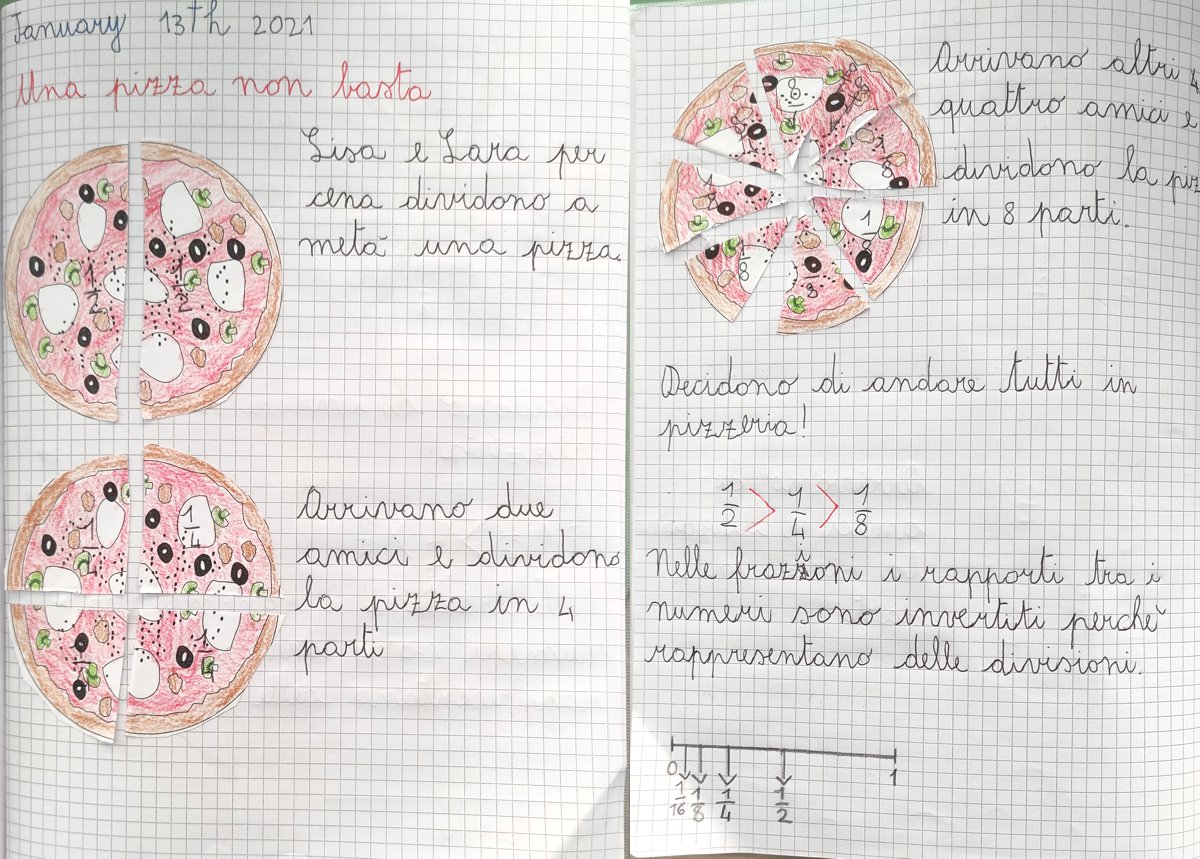 January 13th 2021
Una pizza non basta
Lisa e Lara per
cena dividono a
metà una pizza.
1/2 1/2
Arrivano due
amici e dividono
la pizza in 4
parti
1/4 1/4
1/4 1/4
Arrivano altri 4
quattro amici e
dividono la piz
in 8 parti.
1/8 1/8
1/8 1/8
1/8 1/8
1/8 1/8
Decidono di andare tutti in
pizzeria!
1/2 > 1/4 > 1/8
Nelle frazioni i rapporti tra i
numeri sono invertiti perchè
rappresentano delle divisioni.
0 1
1/16 1/8 1/4 1/2